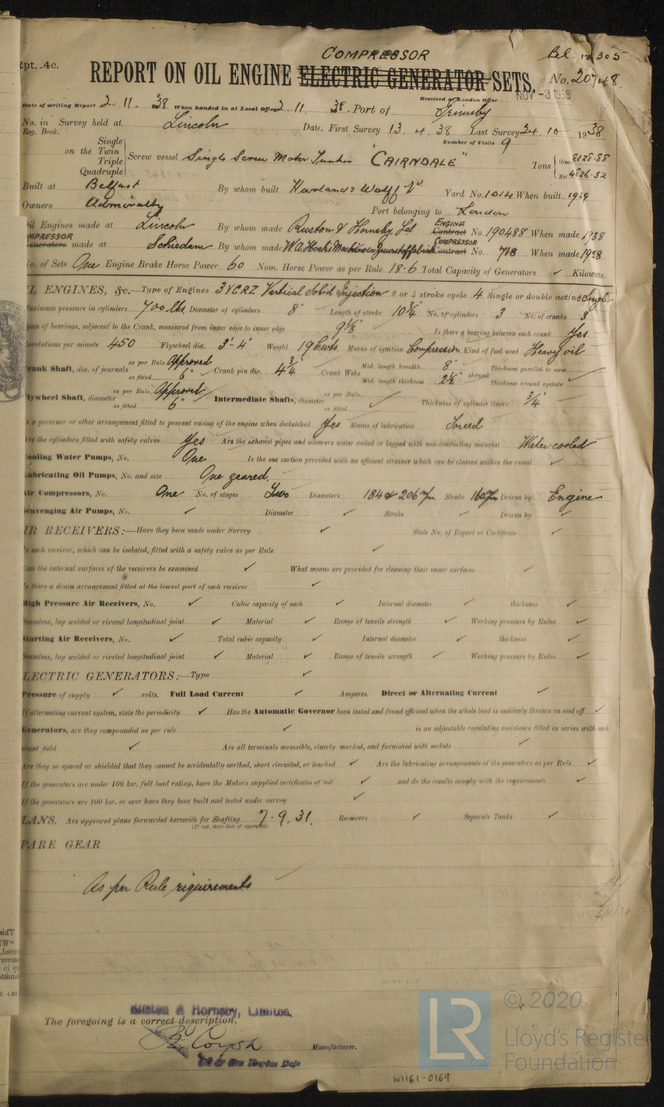 COMPRESSOR
Rpt. 4c. Bel. 12305
REPORT ON OIL ENGINE ELECTRIC GENERATOR SETS. No. 20748
Received at London Office NOV -3 1938
Date of writing Report 2. 11. 38 When handed in at Local Office 2. 11. 38. Port of Grimsby
No. in Survey held at Lincoln Date, First Survey 13. 4. 38 Last Survey 24. 10. 1938
Reg. Book. Number of Visits 9
on the Single Twin Triple Quadruple Screw vessel Single Screw Motor Tanker "CAIRNDALE" Tons Gross 8128.88 Net 4826.32
Built at Belfast By whom built Harland & Wolff Ld Yard No. 1014 When built 1929
Owners Admiralty Port belonging to London
Oil Engines made at Lincoln By whom made Ruston & Hornsby Ltd ENGINE Contract No. 190488 When made 1938
COMPRESSOR Generators made at Schiedam By whom made COMPRESSOR Contract No. 713 When made 1938
No. of Sets One Engine Brake Horse Power 60 Nom. Horse Power as per Rule 18.6 Total Capacity of Generators ✓ Kilowatts.
OIL ENGINES, &c.—Type of Engines 3VCRZ Vertical Solid Injection 2 or 4 stroke cycle 4 Single or double acting Single
Maximum pressure in cylinders 700 lbs Diameter of cylinders 8" Length of stroke 10¾" No. of cylinders 3 No. of cranks 3
Span of bearings, adjacent to the Crank, measured from inner edge to inner edge 9⅛" Is there a bearing between each crank Yes
Revolutions per minute 450 Flywheel dia. 3'-4" Weight 19 cwts. Means of ignition Compression Kind of fuel used Heavy oil
Crank Shaft, dia. of journals as per Rule Approved as fitted 6" Crank pin dia. 4¾" Crank Webs Mid. length breadth 8" Mid. length thickness 2½" shrunk Thickness parallel to axis Thickness around eyehole ✓
Flywheel Shaft, diameter as per Rule Approved as fitted 6" Intermediate Shafts, diameter as per Rule as fitted ✓ Thickness of cylinder liners ¾"
Is a governor or other arrangement fitted to prevent racing of the engine when declutched Yes Means of lubrication Forced
Are the cylinders fitted with safety valves Yes Are the exhaust pipes and silencers water cooled or lagged with non-conducting material Water cooled
Cooling Water Pumps, No. One Is the sea suction provided with an efficient strainer which can be cleared within the vessel ✓
Lubricating Oil Pumps, No. and size One geared.
Air Compressors, No. One No. of stages Two Diameters 184 & 206 m/m Stroke 160 m/m Driven by Engine
Scavenging Air Pumps, No. ✓ Diameter ✓ Stroke ✓ Driven by ✓
AIR RECEIVERS:—Have they been made under Survey ✓ State No. of Report or Certificate ✓
Is each receiver, which can be isolated, fitted with a safety valve as per Rule ✓
Can the internal surfaces of the receivers be examined ✓ What means are provided for cleaning their inner surfaces ✓
Is there a drain arrangement fitted at the lowest part of each receiver ✓
High Pressure Air Receivers, No. ✓ Cubic capacity of each ✓ Internal diameter ✓ thickness ✓
Seamless, lap welded or riveted longitudinal joint ✓ Material ✓ Range of tensile strength ✓ Working pressure by Rules ✓
Starting Air Receivers, No. ✓ Total cubic capacity ✓ Internal diameter ✓ thickness ✓
Seamless, lap welded or riveted longitudinal joint ✓ Material ✓ Range of tensile strength ✓ Working pressure by Rules ✓
ELECTRIC GENERATORS:—Type ✓
Pressure of supply ✓ volts. Full Load Current ✓ Amperes. Direct or Alternating Current ✓
If alternating current system, state the periodicity ✓ Has the Automatic Governor been tested and found efficient when the whole load is suddenly thrown on and off ✓
Generators, are they compounded as per rule ✓ is an adjustable regulating resistance fitted in series with each
shunt field ✓ Are all terminals accessible, clearly marked, and furnished with sockets ✓
Are they so spaced or shielded that they cannot be accidentally earthed, short circuited, or touched ✓ Are the lubricating arrangements of the generators as per Rule ✓
If the generators are under 100 kw. full load rating, have the Makers supplied certificates of test ✓ and do the results comply with the requirements ✓
If the generators are 100 kw. or over have they been built and tested under survey ✓
PLANS. Are approved plans forwarded herewith for Shafting 7. 9. 31. Receivers ✓ Separate Tanks ✓
(If not, state date of approval)
SPARE GEAR
As per Rule requirements
Ruston & Hornsby, Limited.
The foregoing is a correct description,
Manufacturer.
W1161-0169
LR © 2020
Lloyd's Register
Foundation